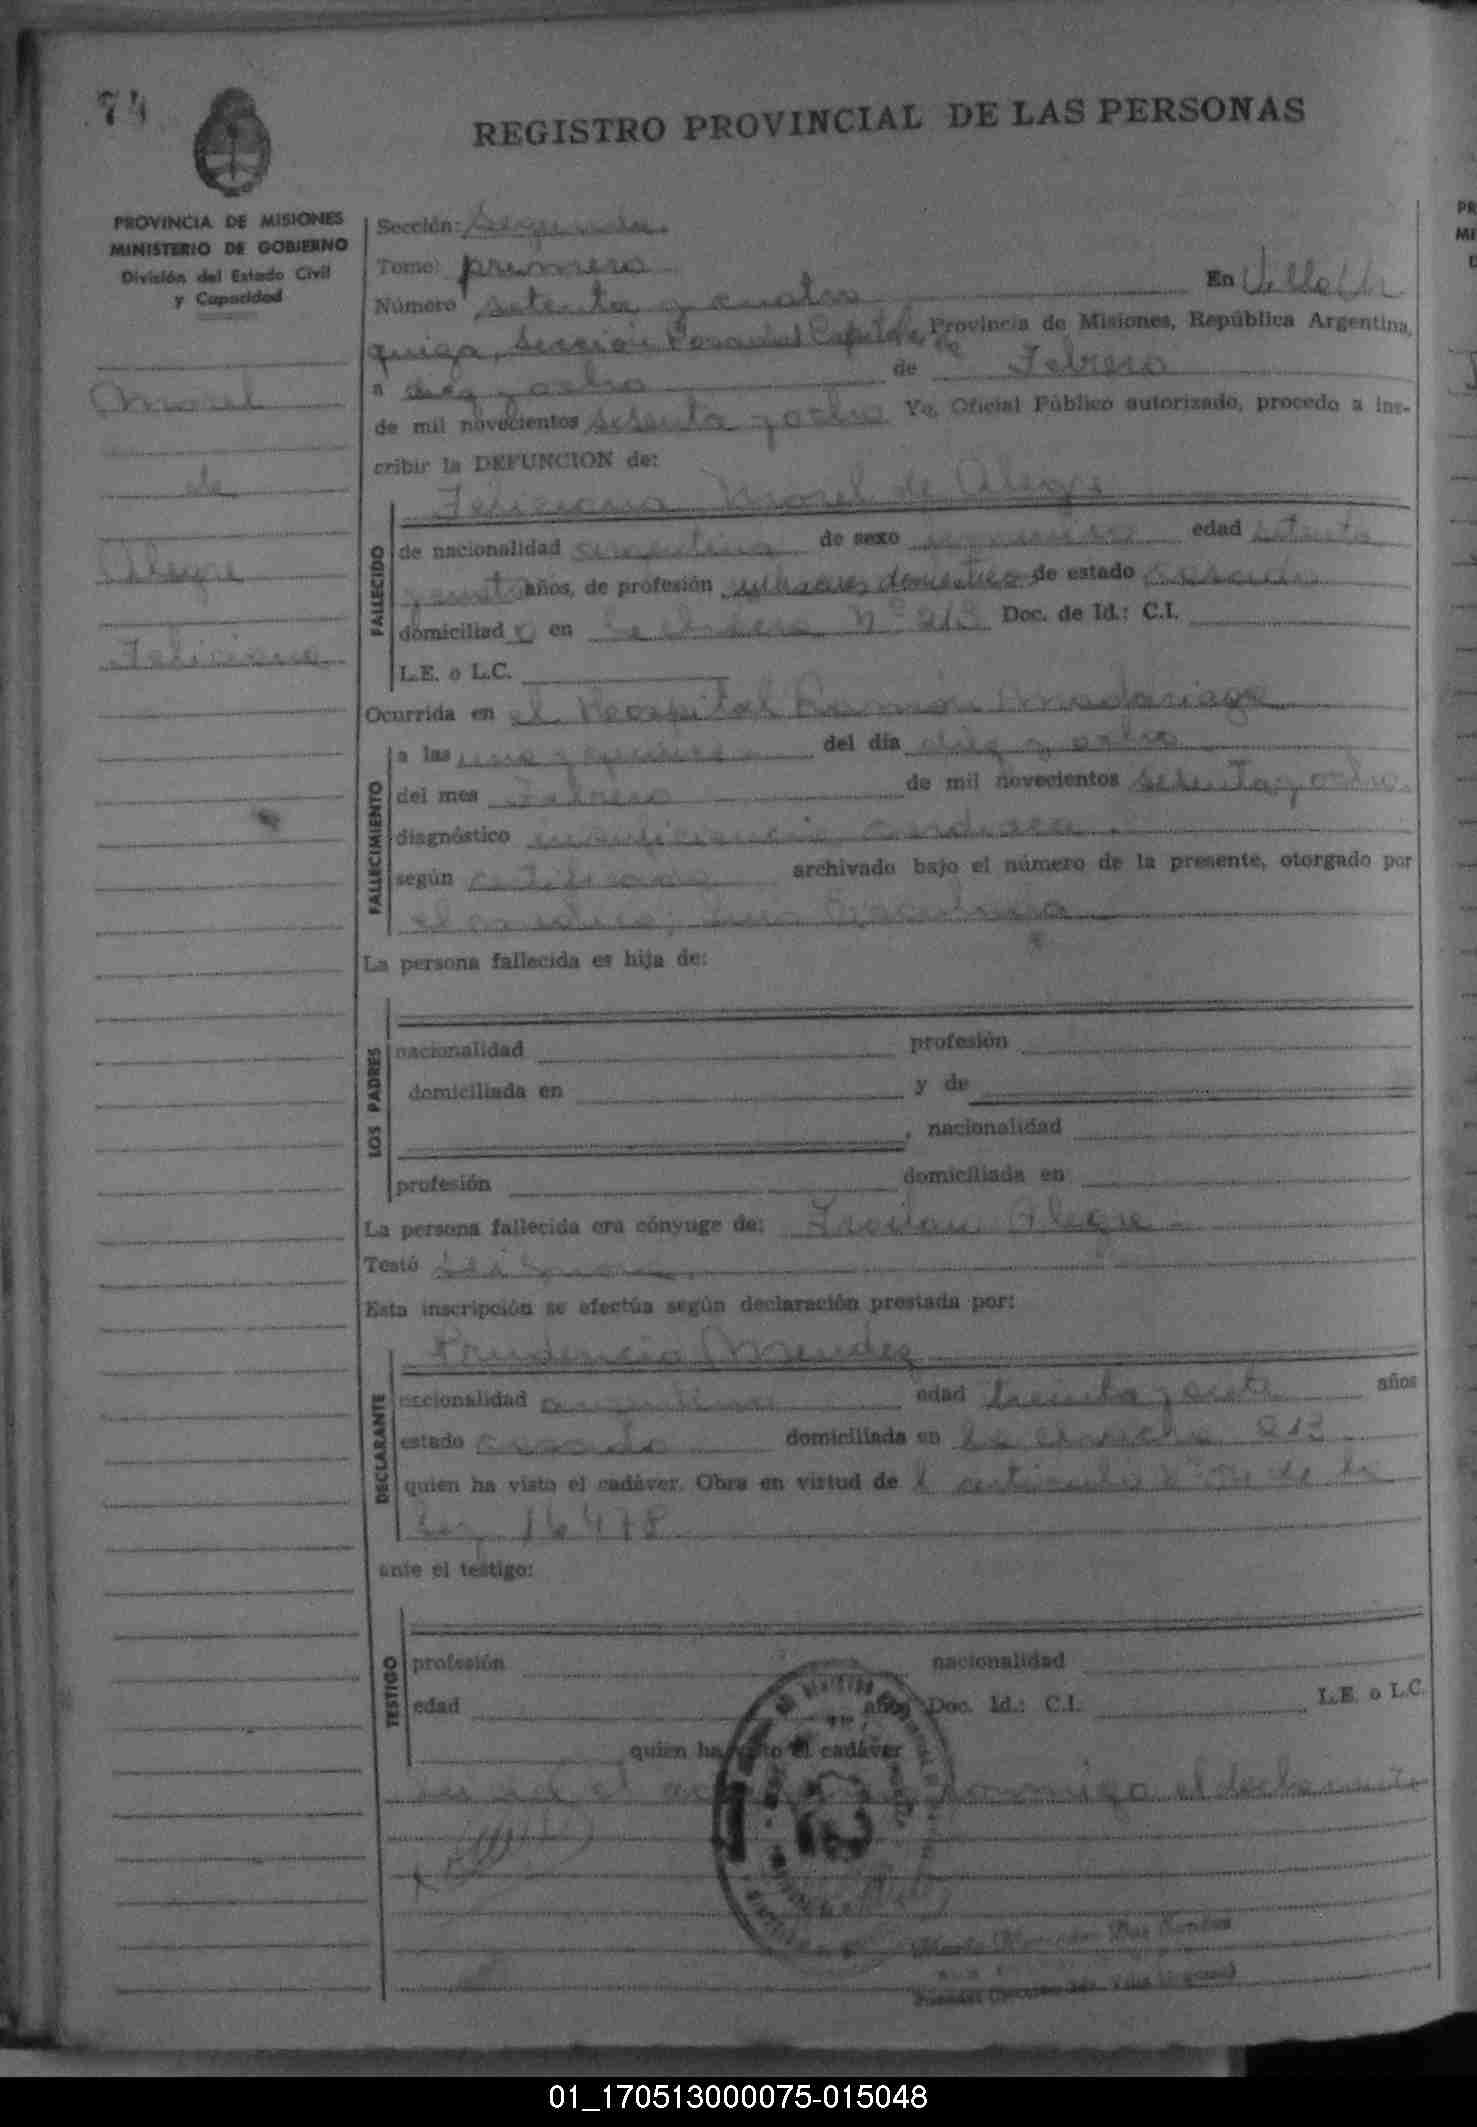 74
REGISTRO PROVINCIAL DE LAS PERSONAS
PROVINCIA DE MISIONES
MINISTERIO DE GOBIERNO
División del Estado Civil
y Capacidad
Morel
de
Alegre
Feliciana
Sección: Segunda
Tomo: primero
Número setenta y cuatro En Villa Ur
quiza, Sección Posadas Capital, Provincia de Misiones, República Argentina,
a diez y ocho de Febrero
de mil novecientos setenta y ocho Yo, Oficial Público autorizado, procedo a ins-
cribir la DEFUNCION de:
Feliciana Morel de Alegre
FALLECIDO
de nacionalidad argentina de sexo femenino edad setenta
y años, de profesión quehaceres domesticos de estado casada
domiciliad a en La Chacra Nº 213 Doc. de Id.: C.I.
L.E. o L.C.
Ocurrida en el Hospital Ramón Madariaga
FALLECIMIENTO
a las una y quince del día diez y ocho
del mes Febrero de mil novecientos setenta y ocho
diagnóstico insuficiencia cardiaca
según certificado archivado bajo el número de la presente, otorgado por
el medico, Luis
La persona fallecida es hija de:
LOS PADRES
nacionalidad profesión
domiciliada en y de
, nacionalidad
profesión domiciliada en
La persona fallecida era cónyuge de: Froilan Alegre
Testó
Esta inscripción se efectúa según declaración prestada por:
Prudencio Mendez
DECLARANTE
nacionalidad argentino edad treinta y siete años
estado casado domiciliada en La Chacra 213
quien ha visto el cadáver. Obra en virtud de de la
Ley 16478
ante el testigo:
TESTIGO
profesión nacionalidad
edad años Doc. Id.: C.I. L.E. o L.C.
quien ha visto el cadáver
conmigo el declarante
01_170513000075-015048